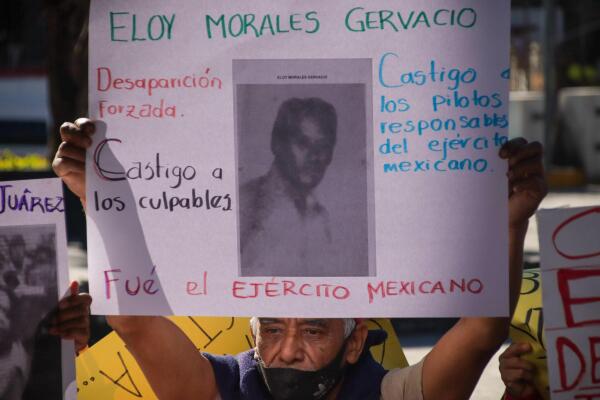 ELOY MORALES GERVACIO
Desaparición
Forzada.
Castigo a
los culpables
ELOY MORALES GERVACIO
Castigo a
los pilotos
responsables
del ejército
mexicano.
Fué el EJÉRCITO MEXICANO
JUÁREZ